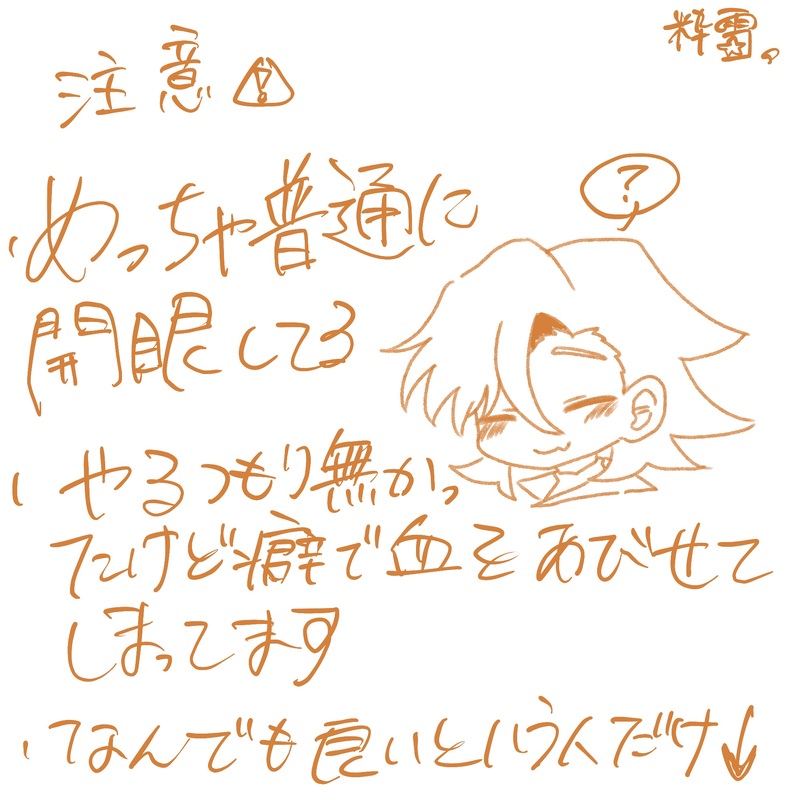 粋雪。
注意⚠
・めっちゃ普通に
開眼してる
?
・やるつもり無かっ
たけど癖で血をあびせて
しまってます
・なんでも良いというひとだけ↓